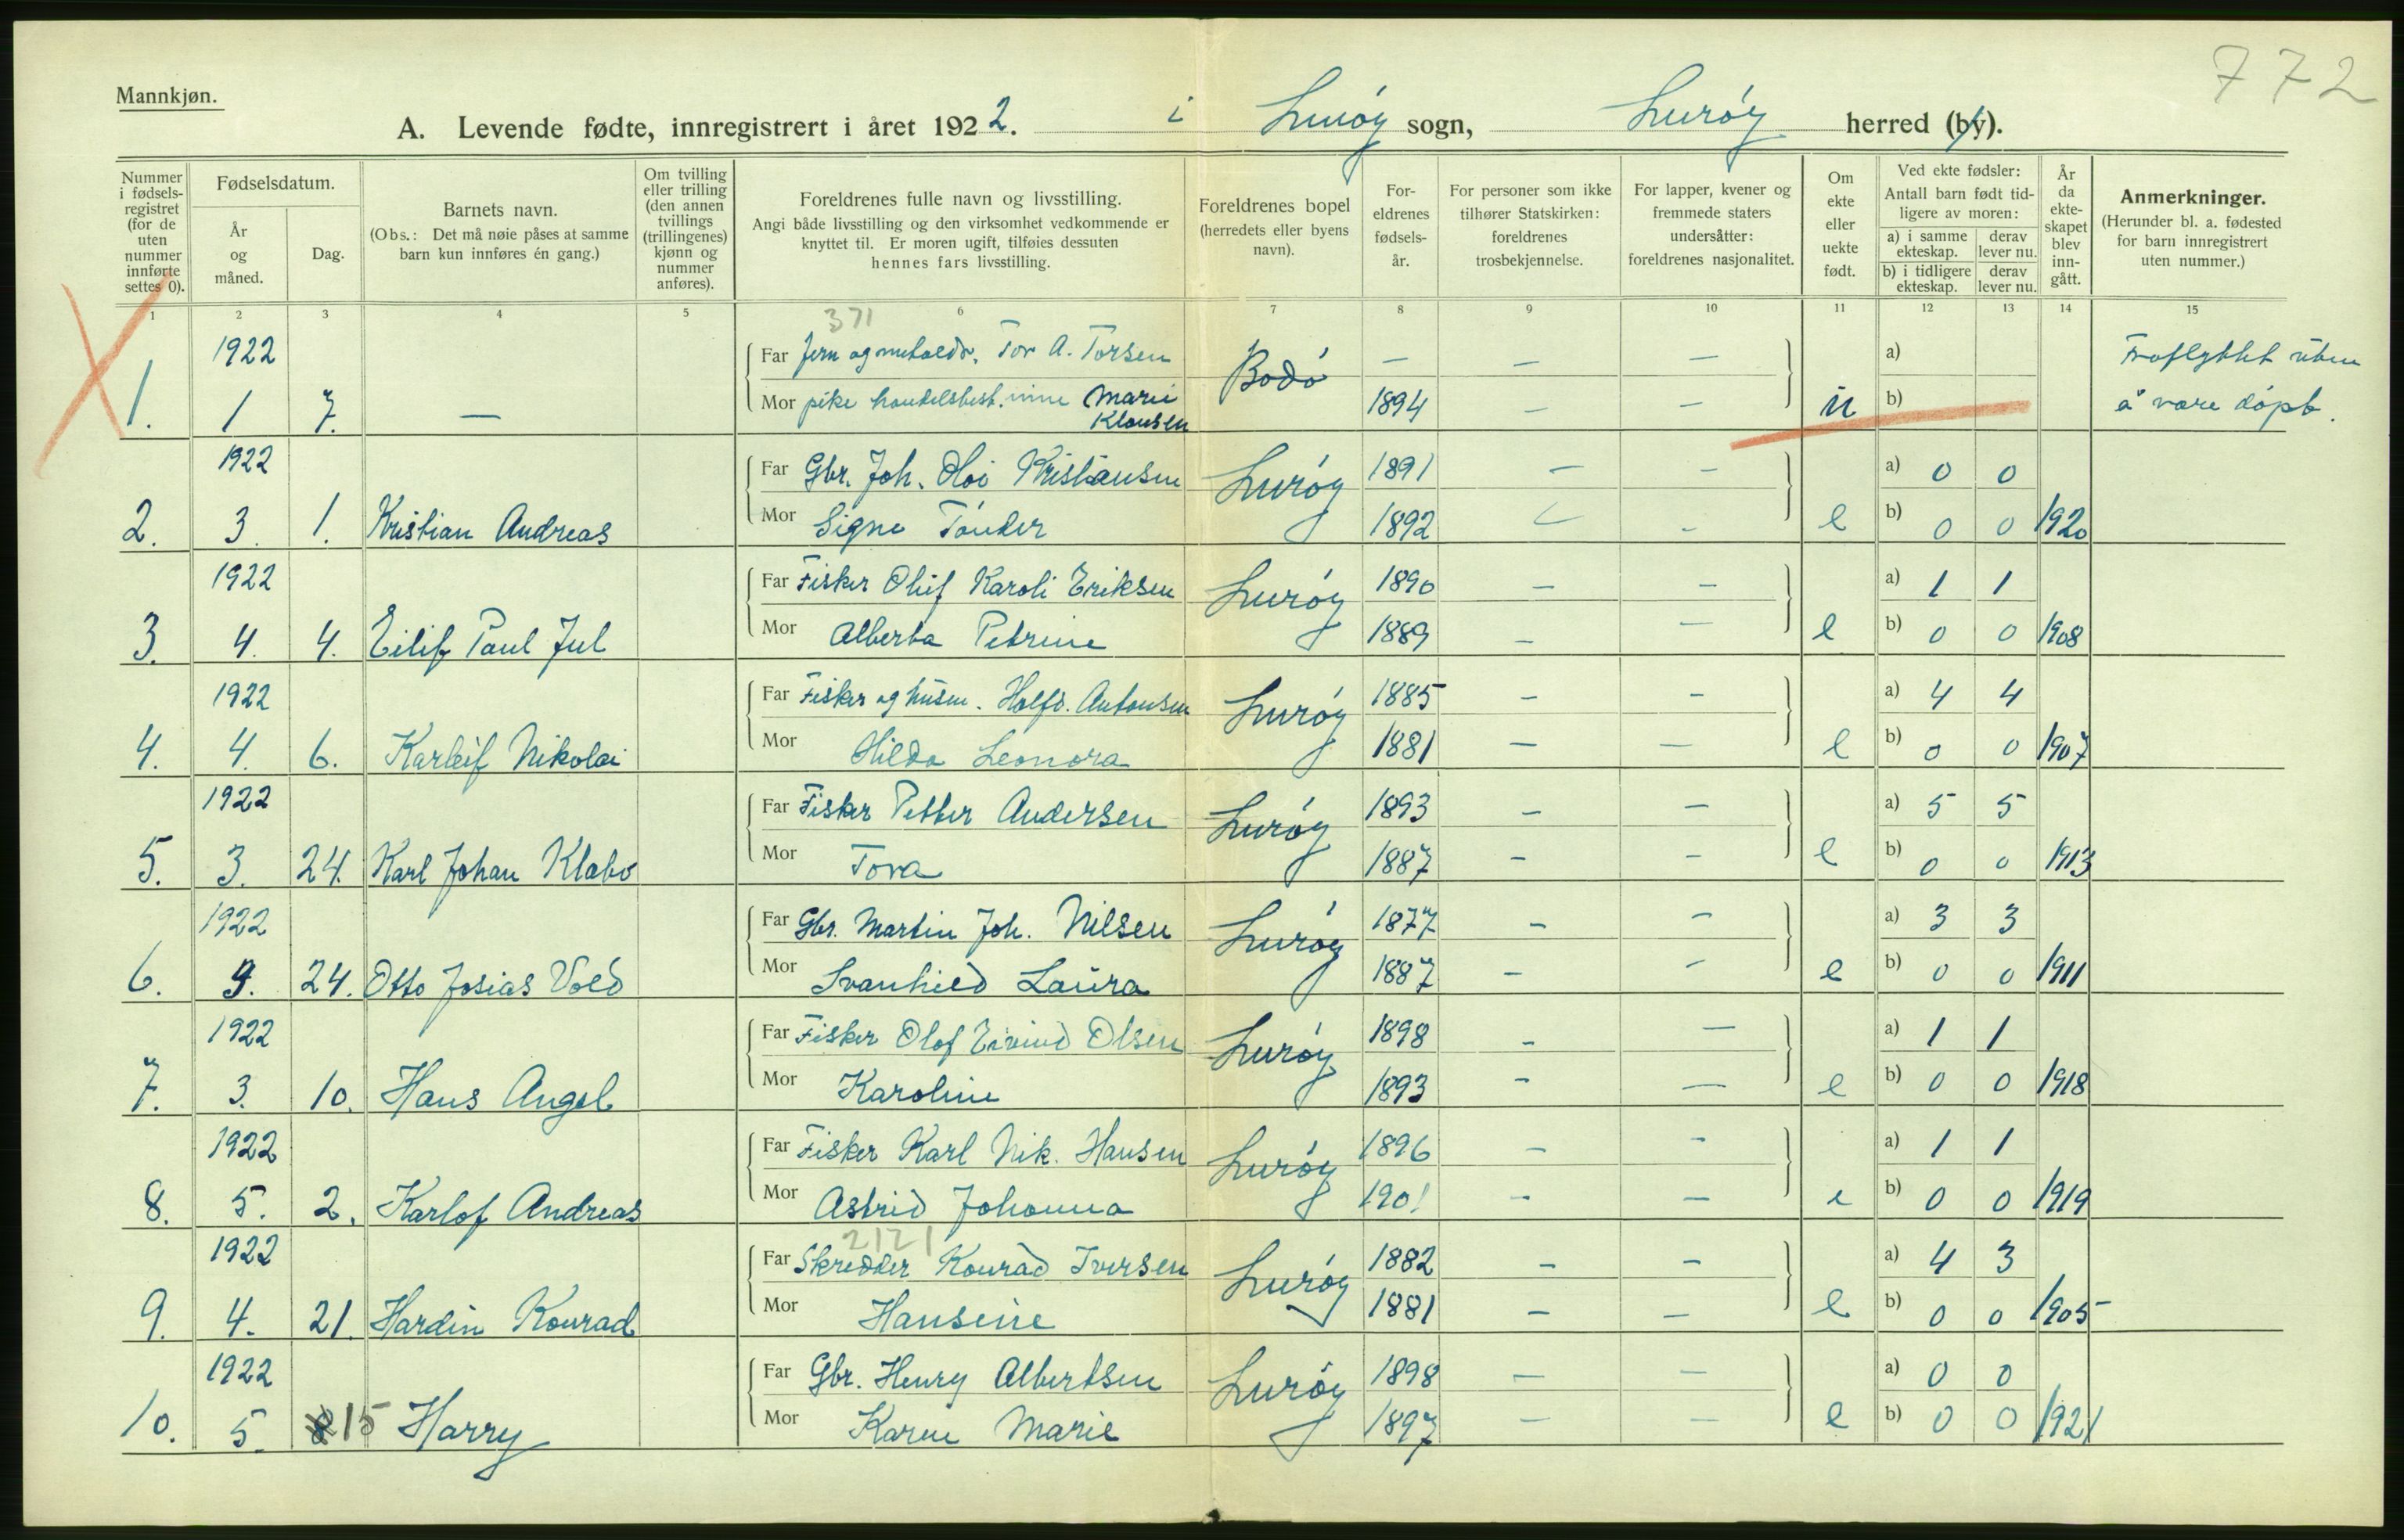 772
Mannkjøn.
A. Levende fødte, innregistrert i året 1922. i Lurøy sogn, Lurøy herred (by).
Nummer i fødsels-registret (for de uten nummer innførte settes 0).
Fødselsdatum.
År og måned.
Dag.
Barnets navn.
(Obs.: Det må nøie påses at samme barn kun innføres én gang.)
Om tvilling eller trilling (den annen tvillings (trillingenes) kjønn og nummer anføres).
Foreldrenes fulle navn og livsstilling.
Angi både livsstilling og den virksomhet vedkommende er knyttet til. Er moren ugift, tilføies dessuten hennes fars livsstilling.
Foreldrenes bopel (herredets eller byens navn).
For-eldrenes fødsels-år.
For personer som ikke tilhører Statskirken: foreldrenes trosbekjennelse.
For lapper, kvener og fremmede staters undersåtter: foreldrenes nasjonalitet.
Om ekte eller uekte født.
Ved ekte fødsler: Antall barn født tid-ligere av moren:
a) i samme ekteskap.
derav lever nu.
b) i tidligere ekteskap.
derav lever nu.
År da ekte-skapet blev inn-gått.
Anmerkninger.
(Herunder bl. a. fødested for barn innregistrert uten nummer.)
1 2 3 4 5 6 7 8 9 10 11 12 13 14 15
371
1922 Far Tor A. Torsen Bodø — — — a) Fraflyttet uten
1. 1 7. — Mor pike handelsbest.inne Marie Klausen 1894 — — u b) å være døpt.
1922 Far Gbr. Joh. Kristiansen Lurøy 1891 — — a) 0 0
2. 3. 1. Kristian Andreas Mor Signe Tønder 1892 — — e b) 0 0 1920
1922 Far Fisker Oluf Karoli Eriksen Lurøy 1890 — — a) 1 1
3. 4. 4. Eilif Paul Jul Mor Alberta Petrine 1889 — — e b) 0 0 1908
1922 Far Fisker og husm. Halfd. Antonsen Lurøy 1885 — — a) 4 4
4. 4. 6. Karleif Nikolai Mor Hilda Leonora 1881 — — e b) 0 0 1907
1922 Far Fisker Petter Andersen Lurøy 1893 — — a) 5 5
5. 3. 24. Karl Johan Klabo Mor Tora 1887 — — e b) 0 0 1913
1922 Far Gbr. Martin Joh. Nilsen Lurøy 1877 — — a) 3 3
6. 24. Otto Josias Vold Mor Svanhild Laura 1887 — — e b) 0 0 1911
1922 Far Fisker Olof Eivind Olsen Lurøy 1898 — — a) 1 1
7. 3. 10. Hans Angel Mor Karoline 1893 — — e b) 0 0 1918
1922 Far Fisker Karl Nik. Hansen Lurøy 1896 — — a) 1 1
8. 5. 2. Karlof Andreas Mor Astrid Johanna 1901 — — e b) 0 0 1919
2121
1922 Far Skredder Konrad Iversen Lurøy 1882 — — a) 4 3
9. 4. 21. Hardin Konrad Mor Hansine 1881 — — e b) 0 0 1905
1922 Far Gbr. Henry Albertsen Lurøy 1898 — — a) 0 0
10. 5. 15 Harry Mor Karen Marie 1897 — — e b) 0 0 1921